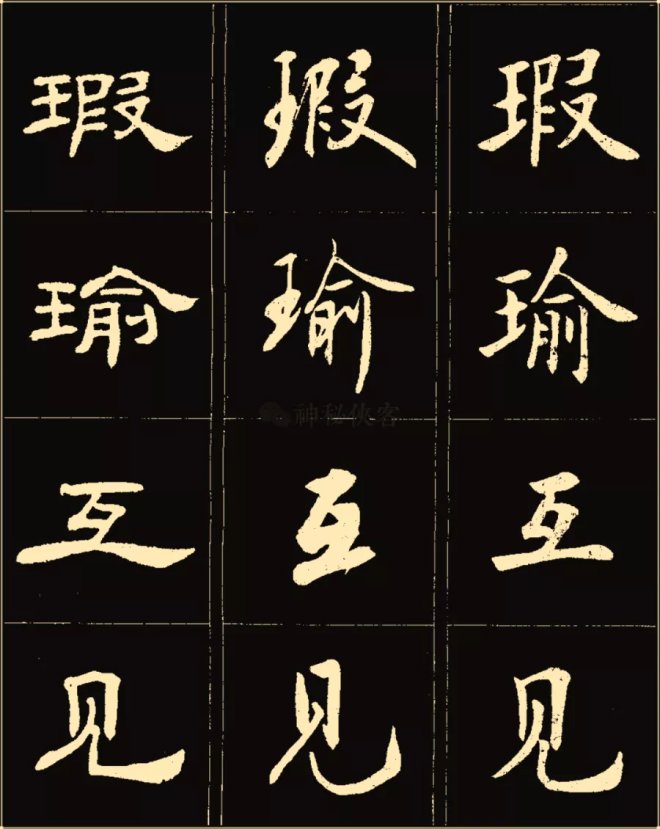 瑕 瑕 瑕
瑜 瑜 瑜
神秘侠客
互 互 互
见 见 见